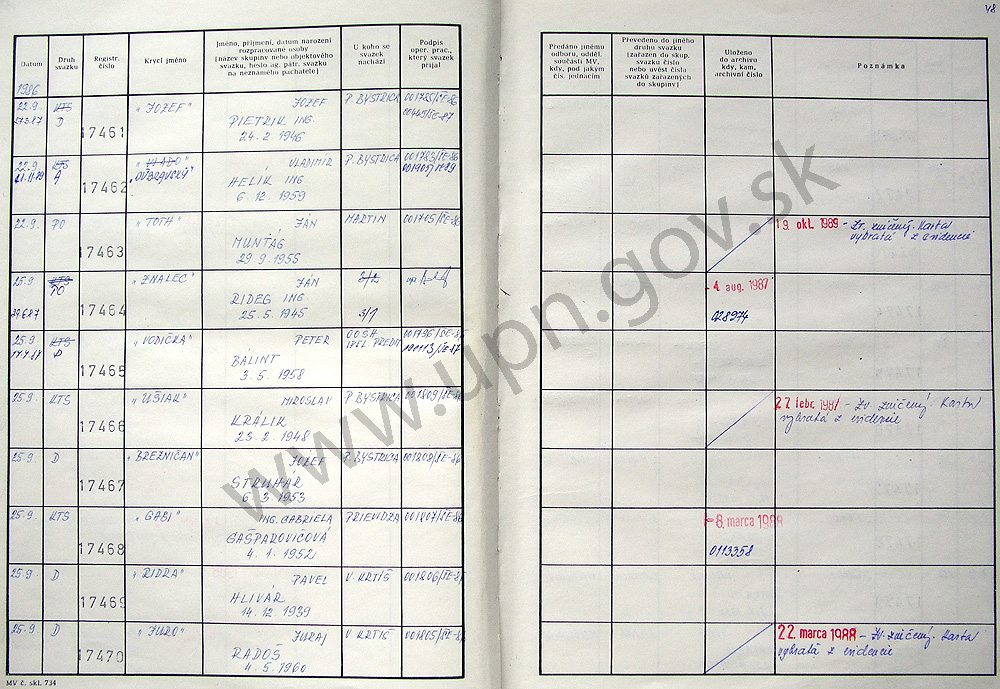 48
Datum
Druh svazku
Registr. číslo
Krycí jméno
Jméno, příjmení, datum narození rozpracované osoby [název skupiny nebo objektového svazku, heslo ag. pátr. svazku na neznámého pachatele]
U koho se svazek nachází
Podpis oper. prac., který svazek přijal
Předáno jinému odboru, odděl. součásti MV, kdy, pod jakým čís. jednacím
Převedeno do jiného druhu svazku [zařazen do skup. svazku číslo nebo uvést čísla svazků zařazených do skupiny]
Uloženo do archívu kdy, kam, archivní číslo
Poznámka
1986
22.9. KTS 17461 "JOZEF" JOZEF P. BYSTRICA 001785/SE-86
27.3.87 D PIETRIK ING. 00445/SE-87
24. 2. 1946
22.9. KTS 17462 "VLADO" VLADIMÍR P. BYSTRICA 001783/SE-86
A "DÚBRAVSKÝ" HELÍK ING
6. 12. 1959
22.9. PO 17463 "TOTH" JÁN MARTIN 001715/SE-86
MUNTÁG
29. 9. 1955
19. okt. 1989 - Zv. zničený. Karta vybratá z evidencie
25.9 KTS 17464 "ZNALEC" JÁN 2/2
PO RIDEG ING.
29.6.87 25. 5. 1945 3/1
-4. aug. 1987
028974
25.9 KTS 17465 "VODIČKA" PETER OOSH 001796/SE-86
17.9.87 D BÁLINT IPEL. PREDM
3. 5. 1958
25.9. KTS 17466 "UŠIAK" MIROSLAV P. BYSTRICA 001809/SE-86
KRÁLIK
23. 2. 1948
27. febr. 1987 - Zv. zničený. Karta vybratá z evidencie
25.9. D 17467 "BREZNIČAN" JOZEF P. BYSTRICA 001808/SE-86
STRUHÁR
6. 3. 1953
25.9. KTS 17468 "GABI" ING. GABRIELA PRIEVIDZA 001807/SE-86
GAŠPAROVIČOVÁ
4. 1. 1952
-8. marca 1988
0113358
25.9 D 17469 "RIDRA" PAVEL V. KRTÍŠ 001806/SE-86
HLIVÁR
14. 12. 1939
25.9. D 17470 "JURO" JURAJ V KRTIŠ 001805/SE-86
RADOŠ
4. 5. 1960
22. marca 1988 - Zv. zničený. Karta vybratá z evidencie
MV č. skl. 734
www.upn.gov.sk